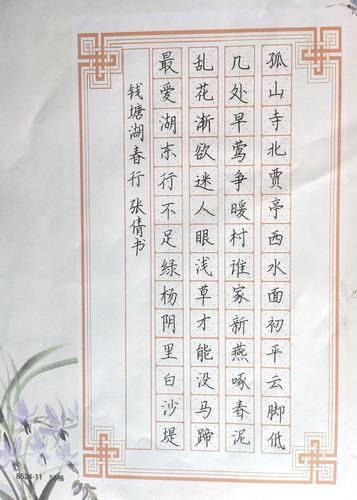 孤山寺北贾亭西水面初平云脚低
几处早莺争暖村谁家新燕啄春泥
乱花渐欲迷人眼浅草才能没马蹄
最爱湖东行不足绿杨阴里白沙堤
钱塘湖春行 张倩书
8624-11 56格